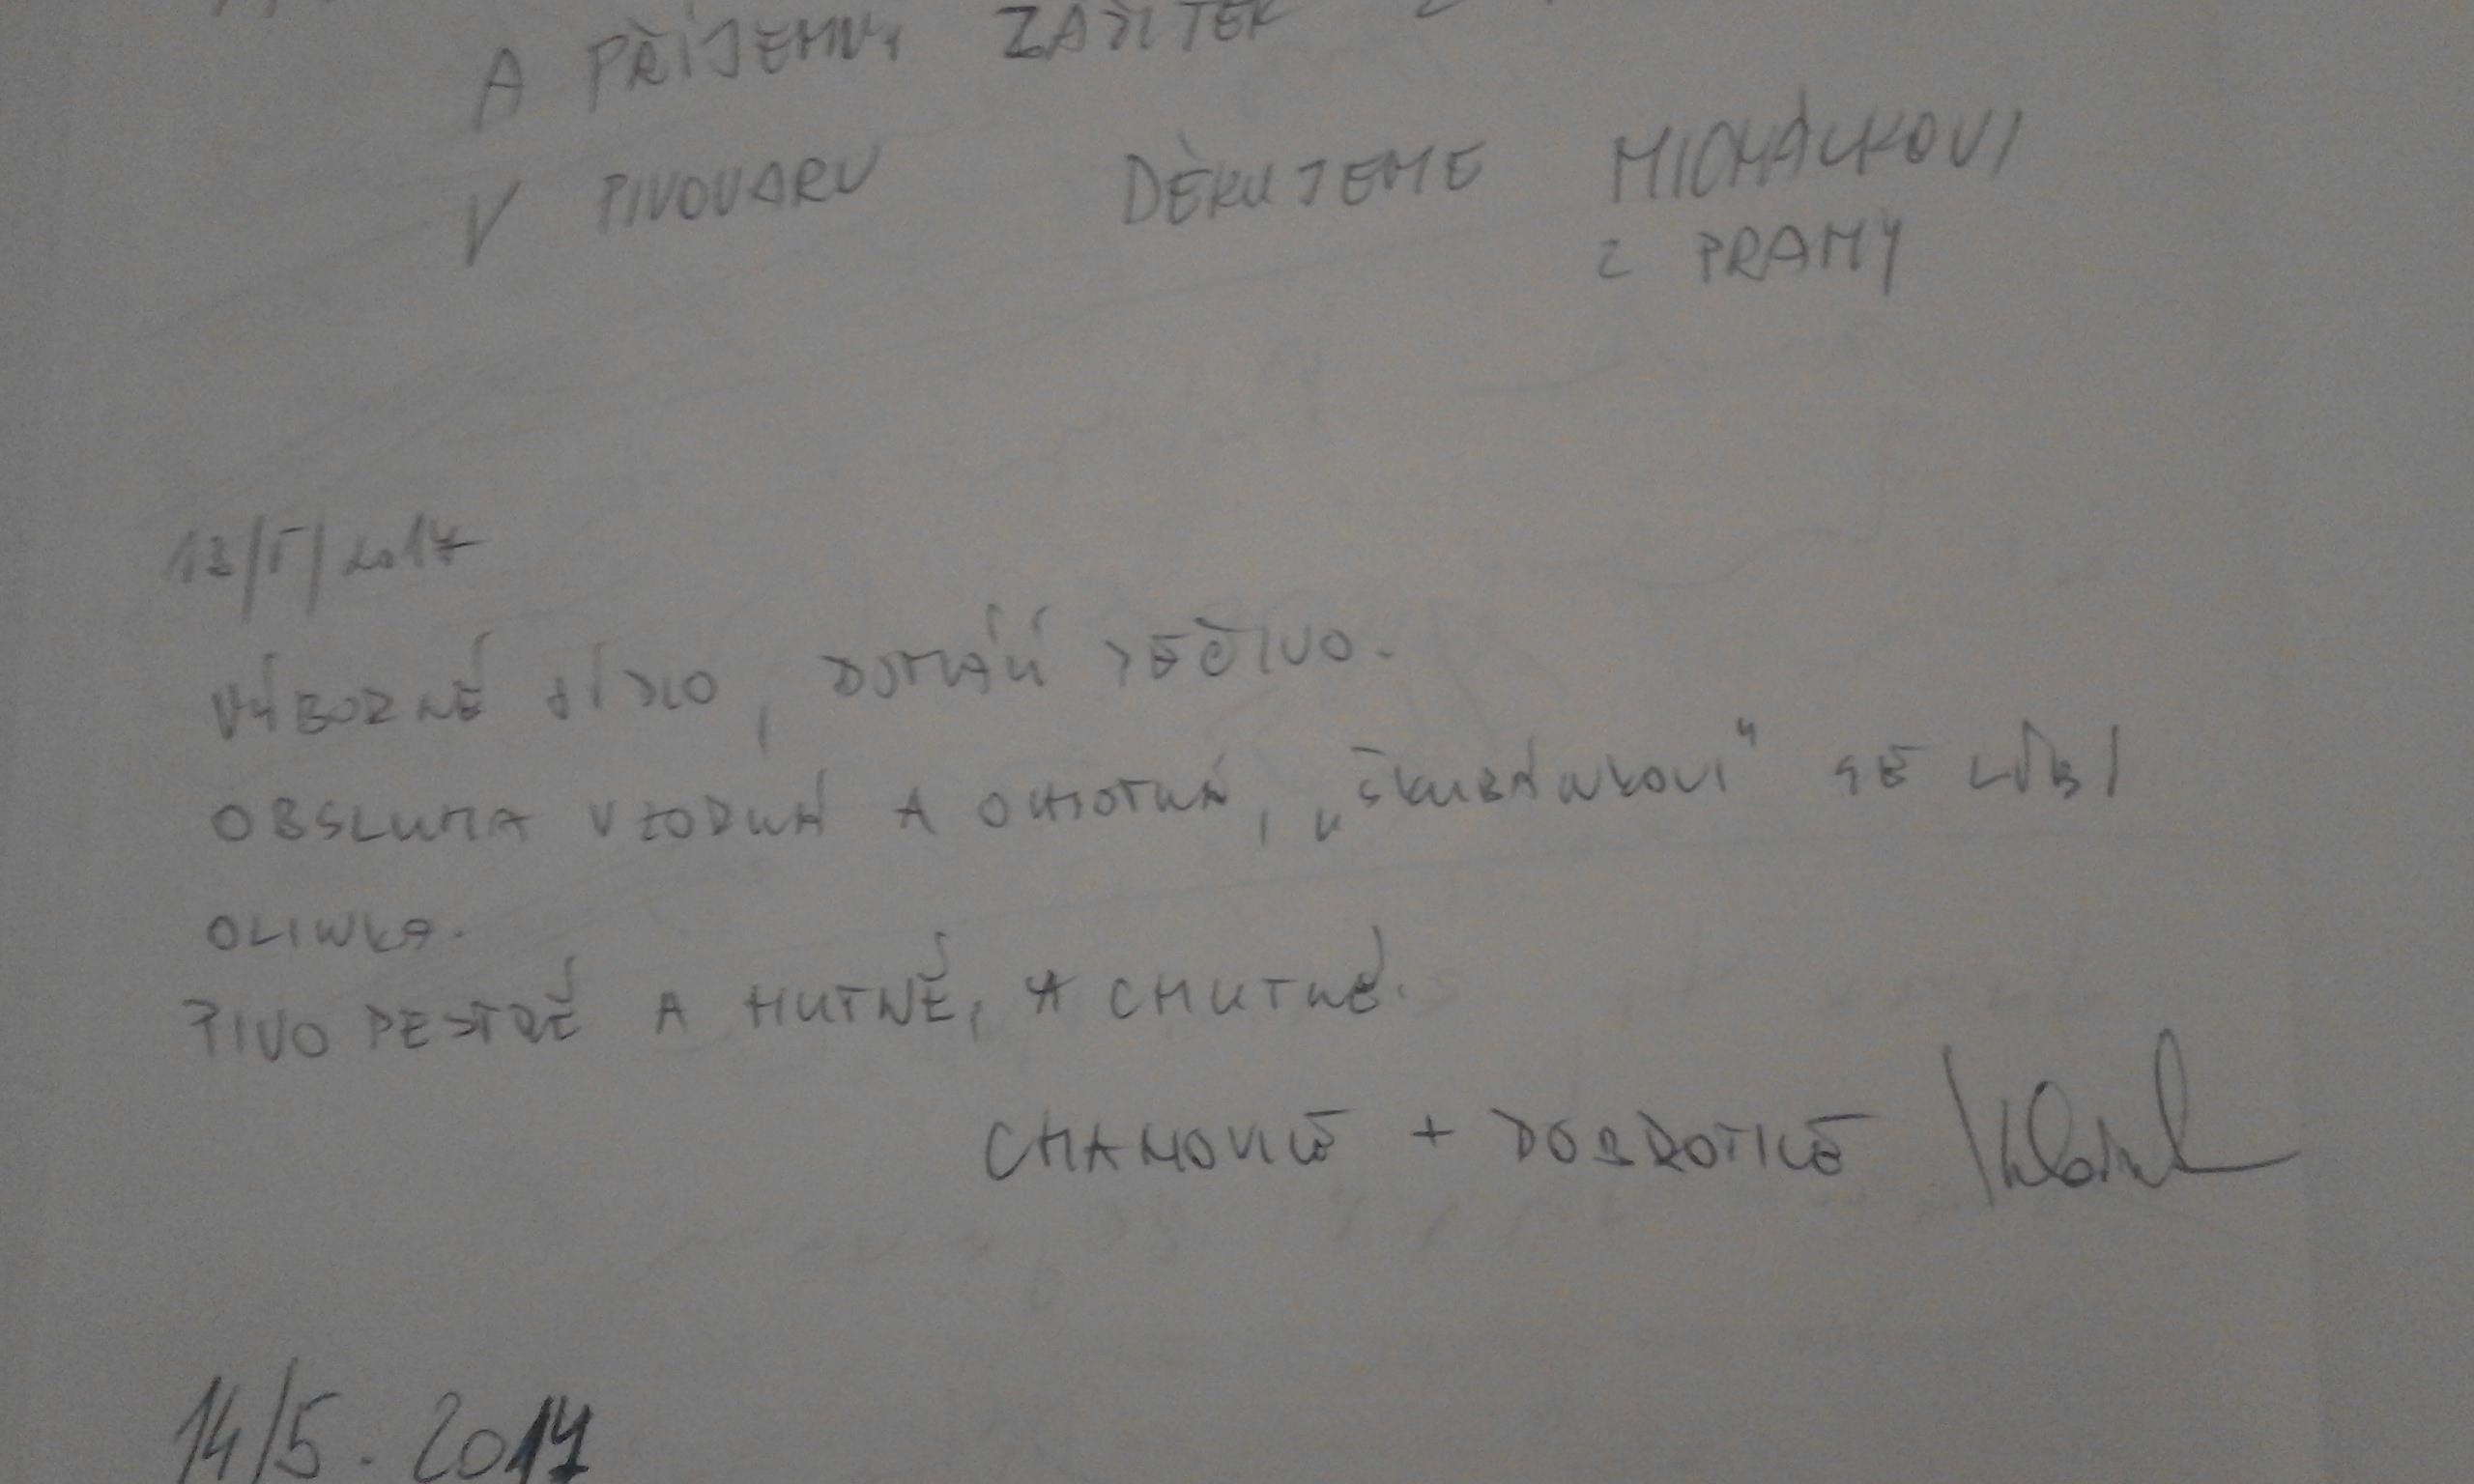 A PŘÍJEMNÝ ZÁŽITEK
V PIVOVARU DĚKUJEME MICHÁLKOVI
Z PRAHY
13/5/2017
VÝBORNÉ JÍDLO, DOMÁCÍ PEČIVO.
OBSLUHA VZORNÁ A OCHOTNÁ, „ŠKUBÁNKOVI“ SE LÍBÍ
OLINKA.
PIVO PESTRÉ A HUTNÉ, A CHUTNÉ.
CHANOVICE + DOBROTICE
14/5. 2017